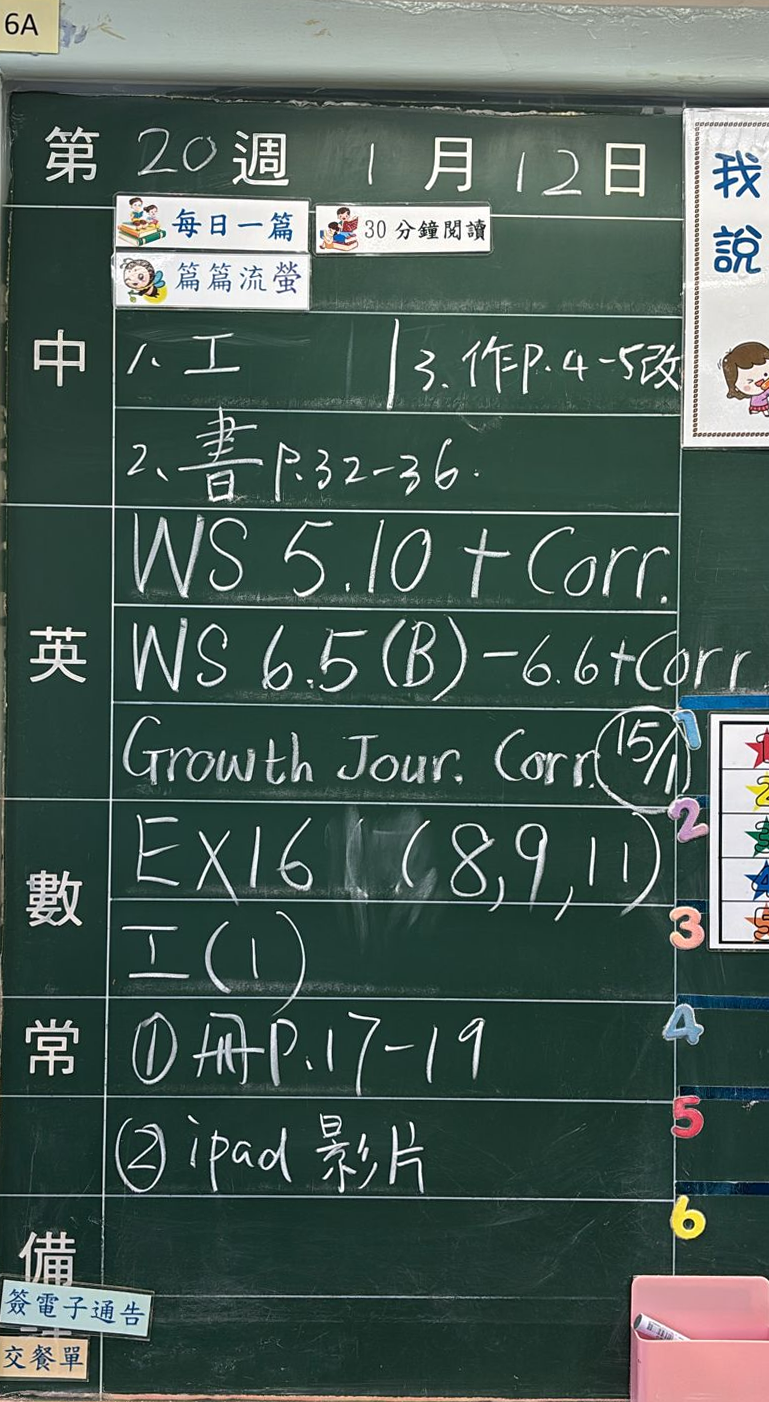 6A
第 20 週 1 月 12 日
每日一篇 30分鐘閱讀
篇篇流螢
中
1、工 3、作P.4-5改
2、書P.32-36.
英
WS 5.10 + Corr.
WS 6.5(B)-6.6+Corr
Growth Jour. Corr. 15/1
數
EX16 (8,9,11)
工(1)
常
① 冊P.17-19
② ipad 影片
備
簽電子通告
交餐單
我
說
1
2
3
4
5
6